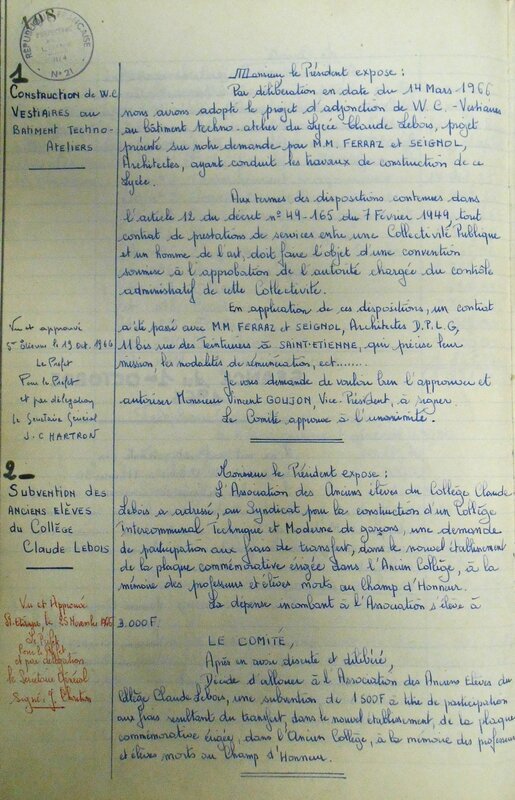 108
RÉPUBLIQUE FRANÇAISE
N° 21
1
CONSTRUCTION de W.C
VESTIAIRES au
BATIMENT TECHNO-
ATELIERS
Monsieur le Président expose :
Par délibération en date du 14 Mars 1966
nous avions adopté le projet d'adjonction de W.C. - Vestiaires
au bâtiment techno-atelier du Lycée Claude Lebois, projet
présenté sur notre demande par M.M. FERRAZ et SEIGNOL,
Architectes, ayant conduit les travaux de construction de ce
Lycée.
Aux termes des dispositions contenues dans
l'article 12 du décret n° 49-165 du 7 Février 1949, tout
contrat de prestations de services entre une Collectivité Publique
et un homme de l'art, doit faire l'objet d'une convention
soumise à l'approbation de l'autorité chargée du contrôle
administratif de cette Collectivité.
En application de ces dispositions, un contrat
a été passé avec M.M. FERRAZ et SEIGNOL, Architectes D.P.L.G,
11 bis rue des Teinturiers à SAINT-ETIENNE, qui précise leur
mission, les modalités de rémunération, ect........
Je vous demande de vouloir bien l'approuver et
autoriser Monsieur Vincent GOUJON, Vice-Président, à signer.
Le Comité approuve à l'unanimité.
Vu et approuvé
St Etienne le 19 Oct. 1966
Le Préfet
Pour le Préfet
et par délégation
Le Secrétaire Général
J. CHARTRON
2
SUBVENTION DES
ANCIENS ELÈVES
DU COLLÈGE
CLAUDE LEBOIS
Monsieur le Président expose :
L'Association des Anciens élèves du Collège Claude
Lebois a adressé, au Syndicat pour la construction d'un Collège
Intercommunal Technique et Moderne de garçons, une demande
de participation aux frais de transfert, dans le nouvel établissement
de la plaque commémorative érigée dans l'Ancien Collège, à la
mémoire des professeurs et élèves morts au Champ d'Honneur.
La dépense incombant à l'Association s'élève à
3.000F.
LE COMITÉ,
Après en avoir discuté et délibéré,
Décide d'allouer à l'Association des Anciens Elèves du
Collège Claude Lebois, une subvention de 1500F à titre de participation
aux frais résultant du transfert, dans le nouvel établissement, de la plaque
commémorative érigée, dans l'Ancien Collège, à la mémoire des professeurs
et élèves morts au Champ d'Honneur.
Vu et Approuvé
St-Etienne, le 25 Novembre 1966
Le Préfet
Pour le Préfet
et par délégation
le Secrétaire Général
Signé: J. Chartron